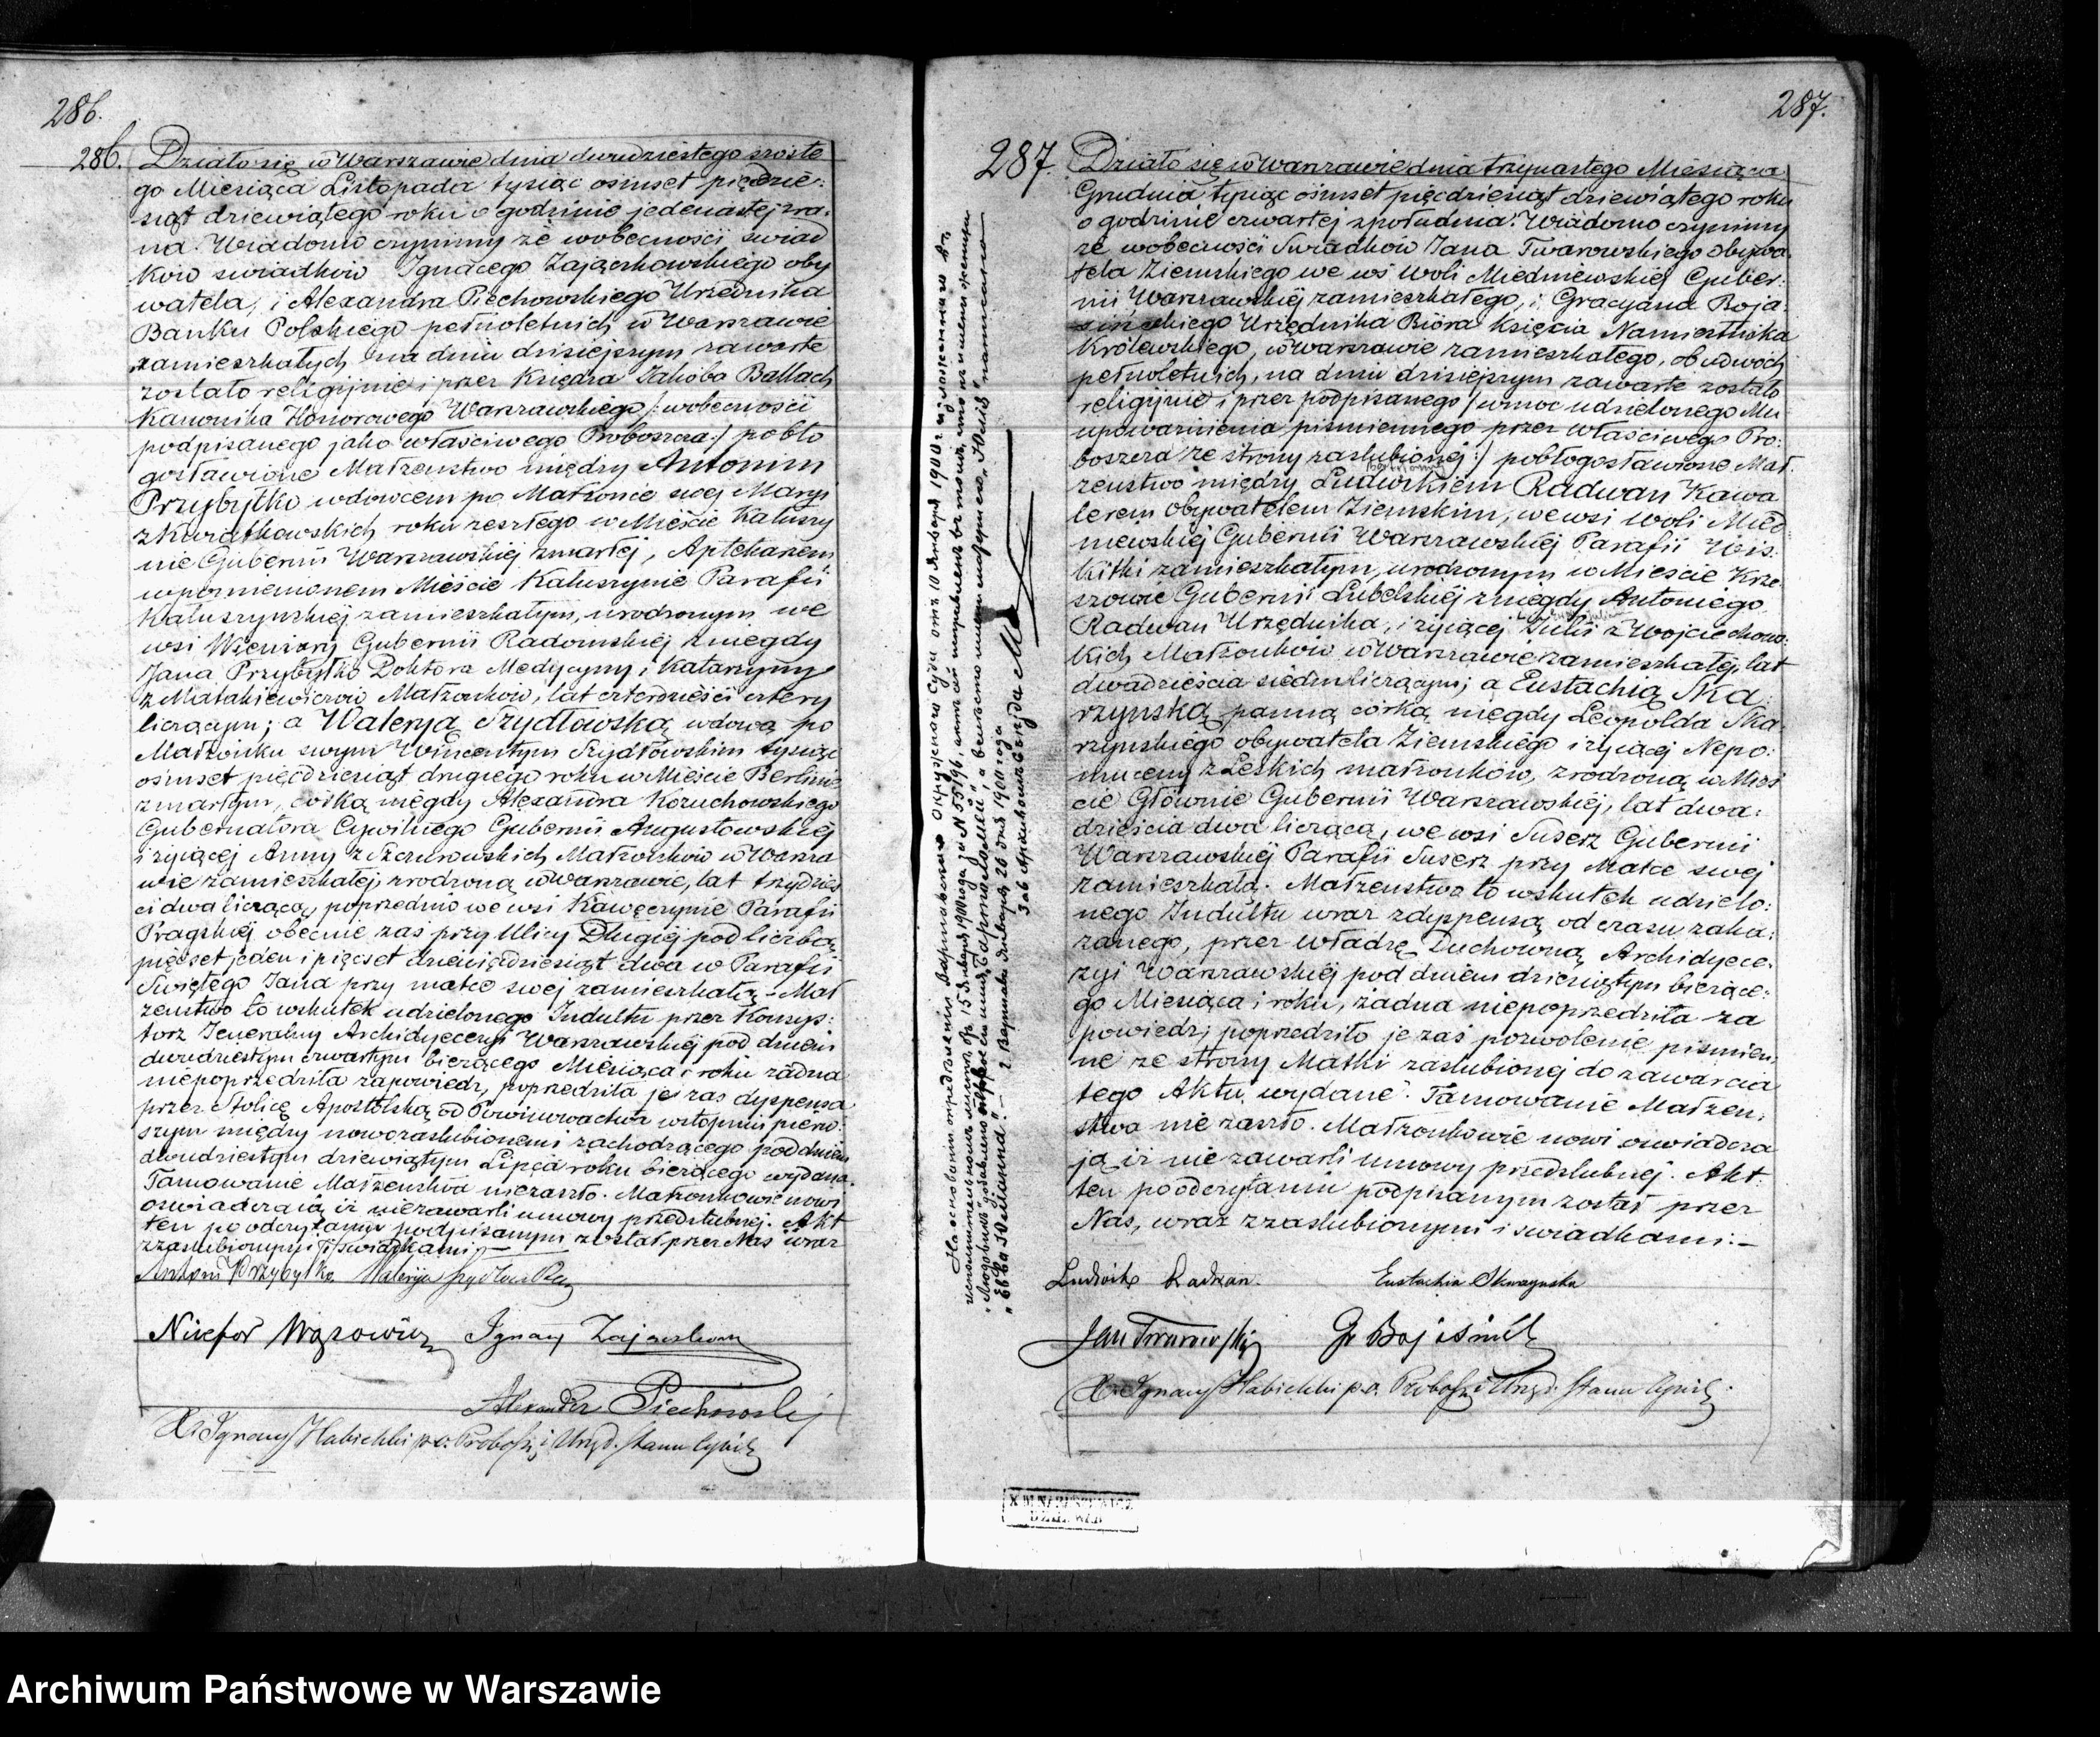 286.
286. Działo się w Warszawie dnia dwudziestego szóste
go Miesiąca Listopada tysiąc ośmset pięćdzie:
siąt dziewiątego roku o godzinie jedenastej zra.
na. Wiadomo czynimy że wobecności świad
ków świadków Ignacego Zajączkowskiego oby
watela, i Alexandra Piechowskiego Urzędnika
Banku Polskiego pełnoletnich w Warszawie
zamieszkałych na dniu dzisiejszym zawarte
zostało religijnie i przez Księdza Jakóba Ballach
Kanonika Honorowego Warszawskiego /: wobecności
podpisanego jako właściwego Proboszcza :/ pobło
gosławione Małżeństwo między Antonim
Przybytko wdowcem po Małżonce swej Maryi
z Kwiatkowskich roku zeszłego w Mieście Kałuszy
nie Gubernii Warszawskiej zmarłej, Aptekarzem,
wspomnionem Mieście Kałuszynie Parafii
Kałuszyńskiej zamieszkałym, urodzonym we
wsi Wieniary Gubernii Radomskiej z niegdy
Jana Przybytko Doktora Medycyny i Katarzyny
z Matakiewiczów Małżonków, lat czterdzieści cztery
liczącym; a Waleryą Szydłowską wdową po
Małżonku swym Wincentym Szydłowskim tysiąc
ośmset pięćdziesiąt drugiego roku w Mieście Berlinie
zmarłym, córką niegdy Alexandra Kożuchowskiego
Gubernatora Cywilnego Gubernii Augustowskiej
i żyjącej Anny z Szczurowskich Małżonków w Warsza
wie zamieszkałej zrodzoną w Warszawie, lat trzydzieś
ci dwa liczącą, poprzednio we wsi Kawęczynie Parafii
Pragskiej obecnie zaś przy Ulicy Długiej pod liczbą
pięćset jeden i pięćset dziewięćdziesiąt dwa w Parafii
Świętego Jana przy matce swej zamieszkałą – Mał
żeństwo to wskutek udzielonego Indultu przez Konsys:
torz Jeneralny Archidyecezyi Warszawskiej pod dniem
dwudziestym czwartym bieżącego Miesiąca i roku żadna
niepoprzedziła zapowiedź, poprzedziła je zaś dyspensa
przez Stolicę Apostolską od Powinowactwa w stopniu pierw:
szym między nowozaślubionemi zachodzącego pod dniem
dwudziestym dziewiątym Lipca roku bieżącego wydana.
Tamowanie Małżeństwa niezaszło. Małżonkowie nowi
oświadczają iż niezawarli umowy przedślubnej. Akt
ten po odczytaniu podpisanym został przez Nas wraz
z zaślubionymi i świadkami. –
Antoni Przybytko Walerija Szydłowska
Nicefor Wąsowicz Ignacy Zajączkowski
Alexander Piechowski
X. Ignacy Habichki p.o. Probosz. i Urzęd. Stanu Cywil.
На основании определения Варшавского Окружного Суда отъ 10 Января 1900 г. изложеннаго въ
исполнительномъ листе отъ 15 Января 1900 года за N 5596, актъ сей исправленъ въ томъ, что въ имени жениха
„Людвикъ" добавлено второе имя „Варѳоломей", а вместо имени матери его „Юлія" написано
„Ева Юліанна". – г. Варшава Января 20 дня 1901 года
Зав. Архивомъ Съезда М
287.
287. Działo się w Warszawie dnia trzynastego Miesiąca
Grudnia tysiąc ośmset pięćdziesiąt dziewiątego roku
o godzinie czwartej z południa. Wiadomo czynimy
że wobecności Świadków Jana Twarowskiego Obywa.
tela Ziemskiego we wś Woli Miedniewskiej Guber:
nii Warszawskiej zamieszkałego, i Gracyana Boja.
sińskiego Urzędnika Bióra Księcia Namiestnika
Królewskiego, w Warszawie zamieszkałego, obudwóch
pełnoletnich, na dniu dzisiejszym zawarte zostało
religijnie i przez podpisanego /: w moc udzielonego Mu
upoważnienia piśmiennego przez właściwego Pro:
boszcza ze strony zaślubionej :/ pobłogosławione Mał.
żeństwo między Ludwikiem Radwan Kawa
lerem Obywatelem Ziemskim, we wsi Woli Mied
niewskiej Gubernii Warszawskiej Parafii Wis:
kitki zamieszkałym, urodzonym w Mieście Krze
szowie Gubernii Lubelskiej z niegdy Antoniego
Radwan Urzędnika, i żyjącej Julii z Wojciechows:
kich Małżonków w Warszawie zamieszkałej, lat
dwadzieścia siedm liczącym; a Eustachią Ska
rzyńską panną córką niegdy Leopolda Ska:
rzyńskiego obywatela Ziemskiego i żyjącej Nepo:
muceny z Leskich małżonków, zrodzoną w Mieś
cie Głównie Gubernii Warszawskiej, lat dwa:
dzieścia dwa liczącą, we wsi Suserz Gubernii
Warszawskiej Parafii Suserz przy Matce swej
zamieszkałą. Małżeństwo to wskutek udzielo:
nego Indultu wraz z dyspensą od czasu zaka:
zanego, przez Władzę Duchowną Archidyece:
zyi Warszawskiej pod dniem dziewiątym bieżące:
go Miesiąca i roku, żadna niepoprzedziła za
powiedź; poprzedziło je zaś pozwolenie piśmien:
ne ze strony Matki zaślubionej do zawarcia
tego Aktu wydane. Tamowanie Małżeń:
stwa nie zaszło. Małżonkowie nowi oświadcza
ją iż nie zawarli umowy przedślubnej. Akt
ten po odczytaniu podpisanym został przez
Nas, wraz z zaślubionymi i świadkami. –
Ludwik Radwan. Eustachia Skarzyńska
Jan Twarowski Gr Bojasiński
X. Ignacy Habichki p.o. Probosz. i Urzęd. Stanu Cywil.
Archiwum Państwowe w Warszawie